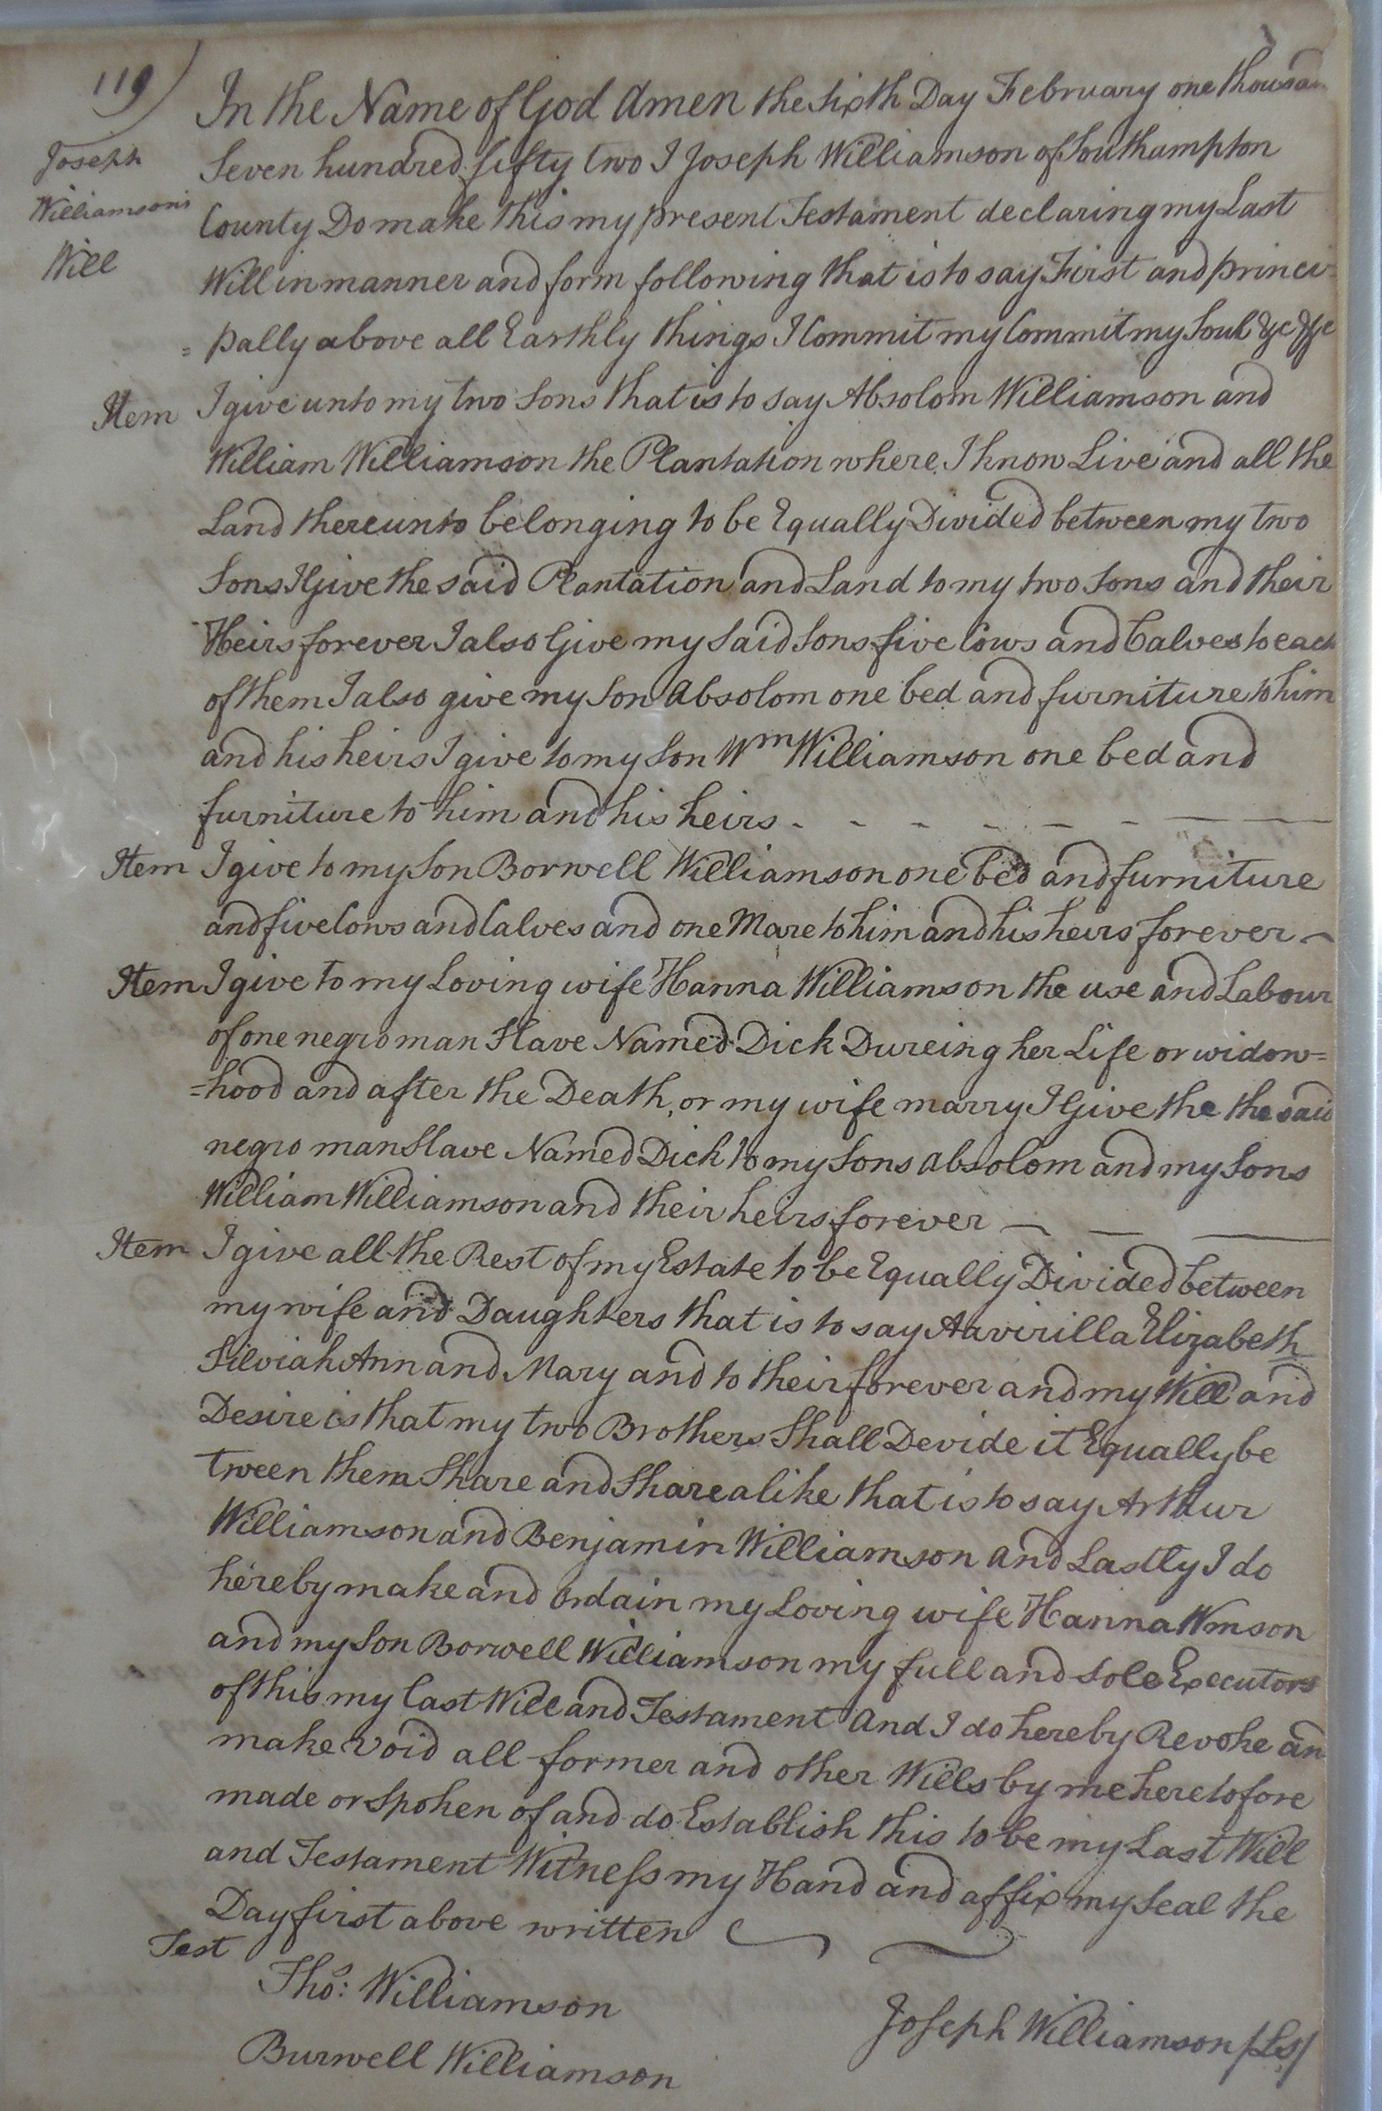 119)
Joseph
Williamson's
Will
In the Name of God Amen the Sixth Day February one thousan
Seven hundred fifty two I Joseph Williamson of Southampton
County Do make this my present Testament declaring my Last
Will in manner and form following that is to say First and princi=
=pally above all Earthly things I Commit my Commit my Soul &c &c
Item I give unto my two Sons that is to say Absolom Williamson and
William Williamson the Plantation where I know Live and all the
Land thereunto belonging to be Equally Divided between my two
Sons I Give the said Plantation and Land to my two Sons and their
Heirs forever I also Give my Said Sons five Cows and Calves to each
of them I also give my Son Absolom one bed and furniture to him
and his heirs I give to my Son Wm Williamson one bed and
furniture to him and his heirs - - - - - - - -
Item I give to my Son Borwell Williamson one bed and furniture
and five Cows and Calves and one Mare to him and his heirs forever ~
Item I give to my Loving wife Hanna Williamson the use and Labour
of one negro man Slave Named Dick Dureing her Life or widow=
=hood and after the Death, or my wife marry I Give the the said
negro man Slave Named Dick to my Sons Absolom and my Sons
William Williamson and their heirs forever — — —
Item I give all the Rest of my Estate to be Equally Divided between
my wife and Daughters that is to say Aavirilla Elizabeth
Silviah Ann and Mary and to their forever and my Will and
Desire is that my two Brothers Shall Devide it Equally be
tween them Share and Share alike that is to say Arthur
Williamson and Benjamin Williamson and Lastly I do
hereby make and Ordain my Loving wife Hanna Wmson
and my Son Borwell Williamson my full and Sole Executors
of this my last Will and Testament And I do hereby Revoke an
make Void all former and other Wills by me heretofore
made or Spoken of and do Establish this to be my Last Will
and Testament Witness my Hand and affix my Seal the
Day first above written
Test
Tho: Williamson
Joseph Williamson /LS/
Burwell Williamson